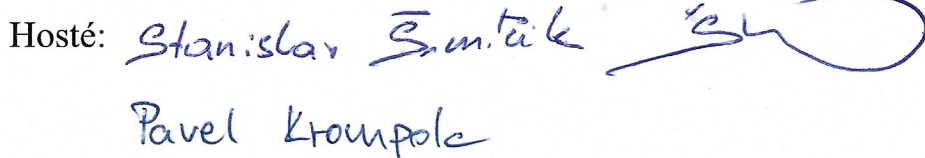 Hosté: Stanislav Šimčík
Pavel Krompolc